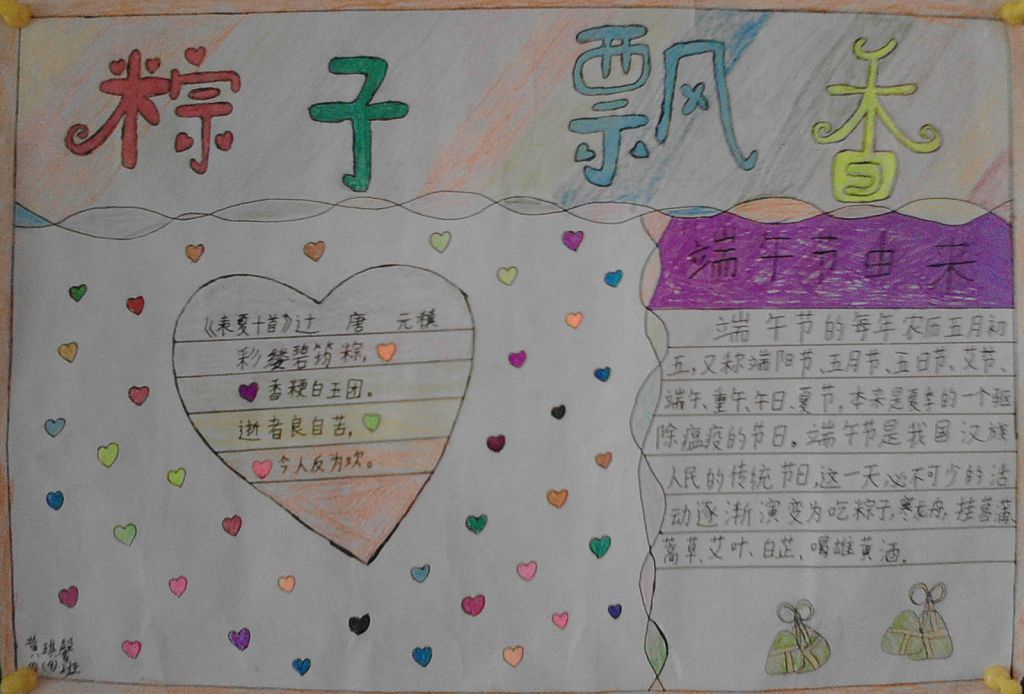 粽子飘香
《表夏十首》过 唐 元稹
彩缕碧筠粽,
香粳白玉团。
逝者良自苦,
今人反为欢。
端午节由来
端午节的每年农历五月初
五,又称端阳节、五月节、五日节、艾节、
端午、重午、午日、夏节,本来是夏季的一个驱
除瘟疫的节日。端午节是我国汉族
人民的传统节日,这一天必不可少的活
动逐渐演变为吃粽子,赛龙舟,挂菖蒲、
蒿草、艾叶、白芷、喝雄黄酒。